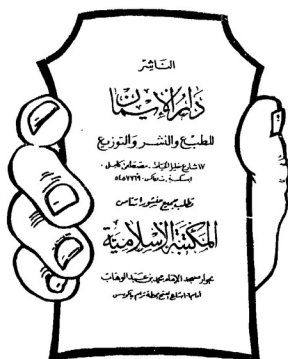 الناشر
دار الإيمان
للطبع والنشر والتوزيع
١٧ شارع خليل الخياط - مصطفى كامل -
اسكندرية
تطلب جميع منشوراتنا من
المكتبة الإسلامية
بجوار مسجد الإمام محمد بن عبد الوهاب
أمام